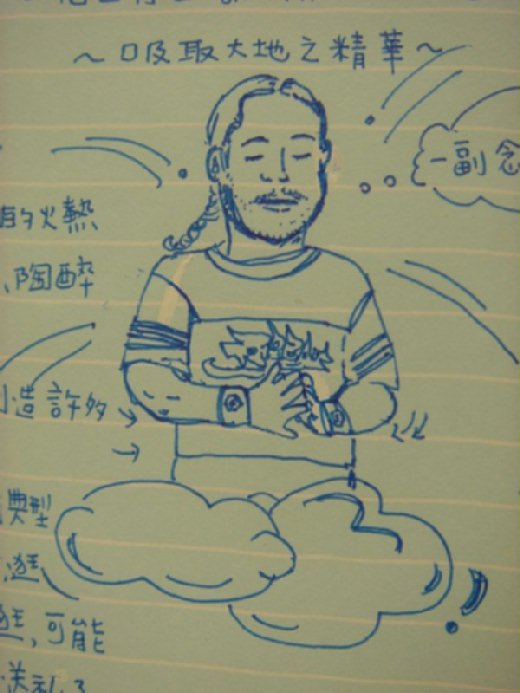 ～吸取大地之精華～
一副念
的火熱
陶醉
造許多
典型
逛
逛,可能
送礼了